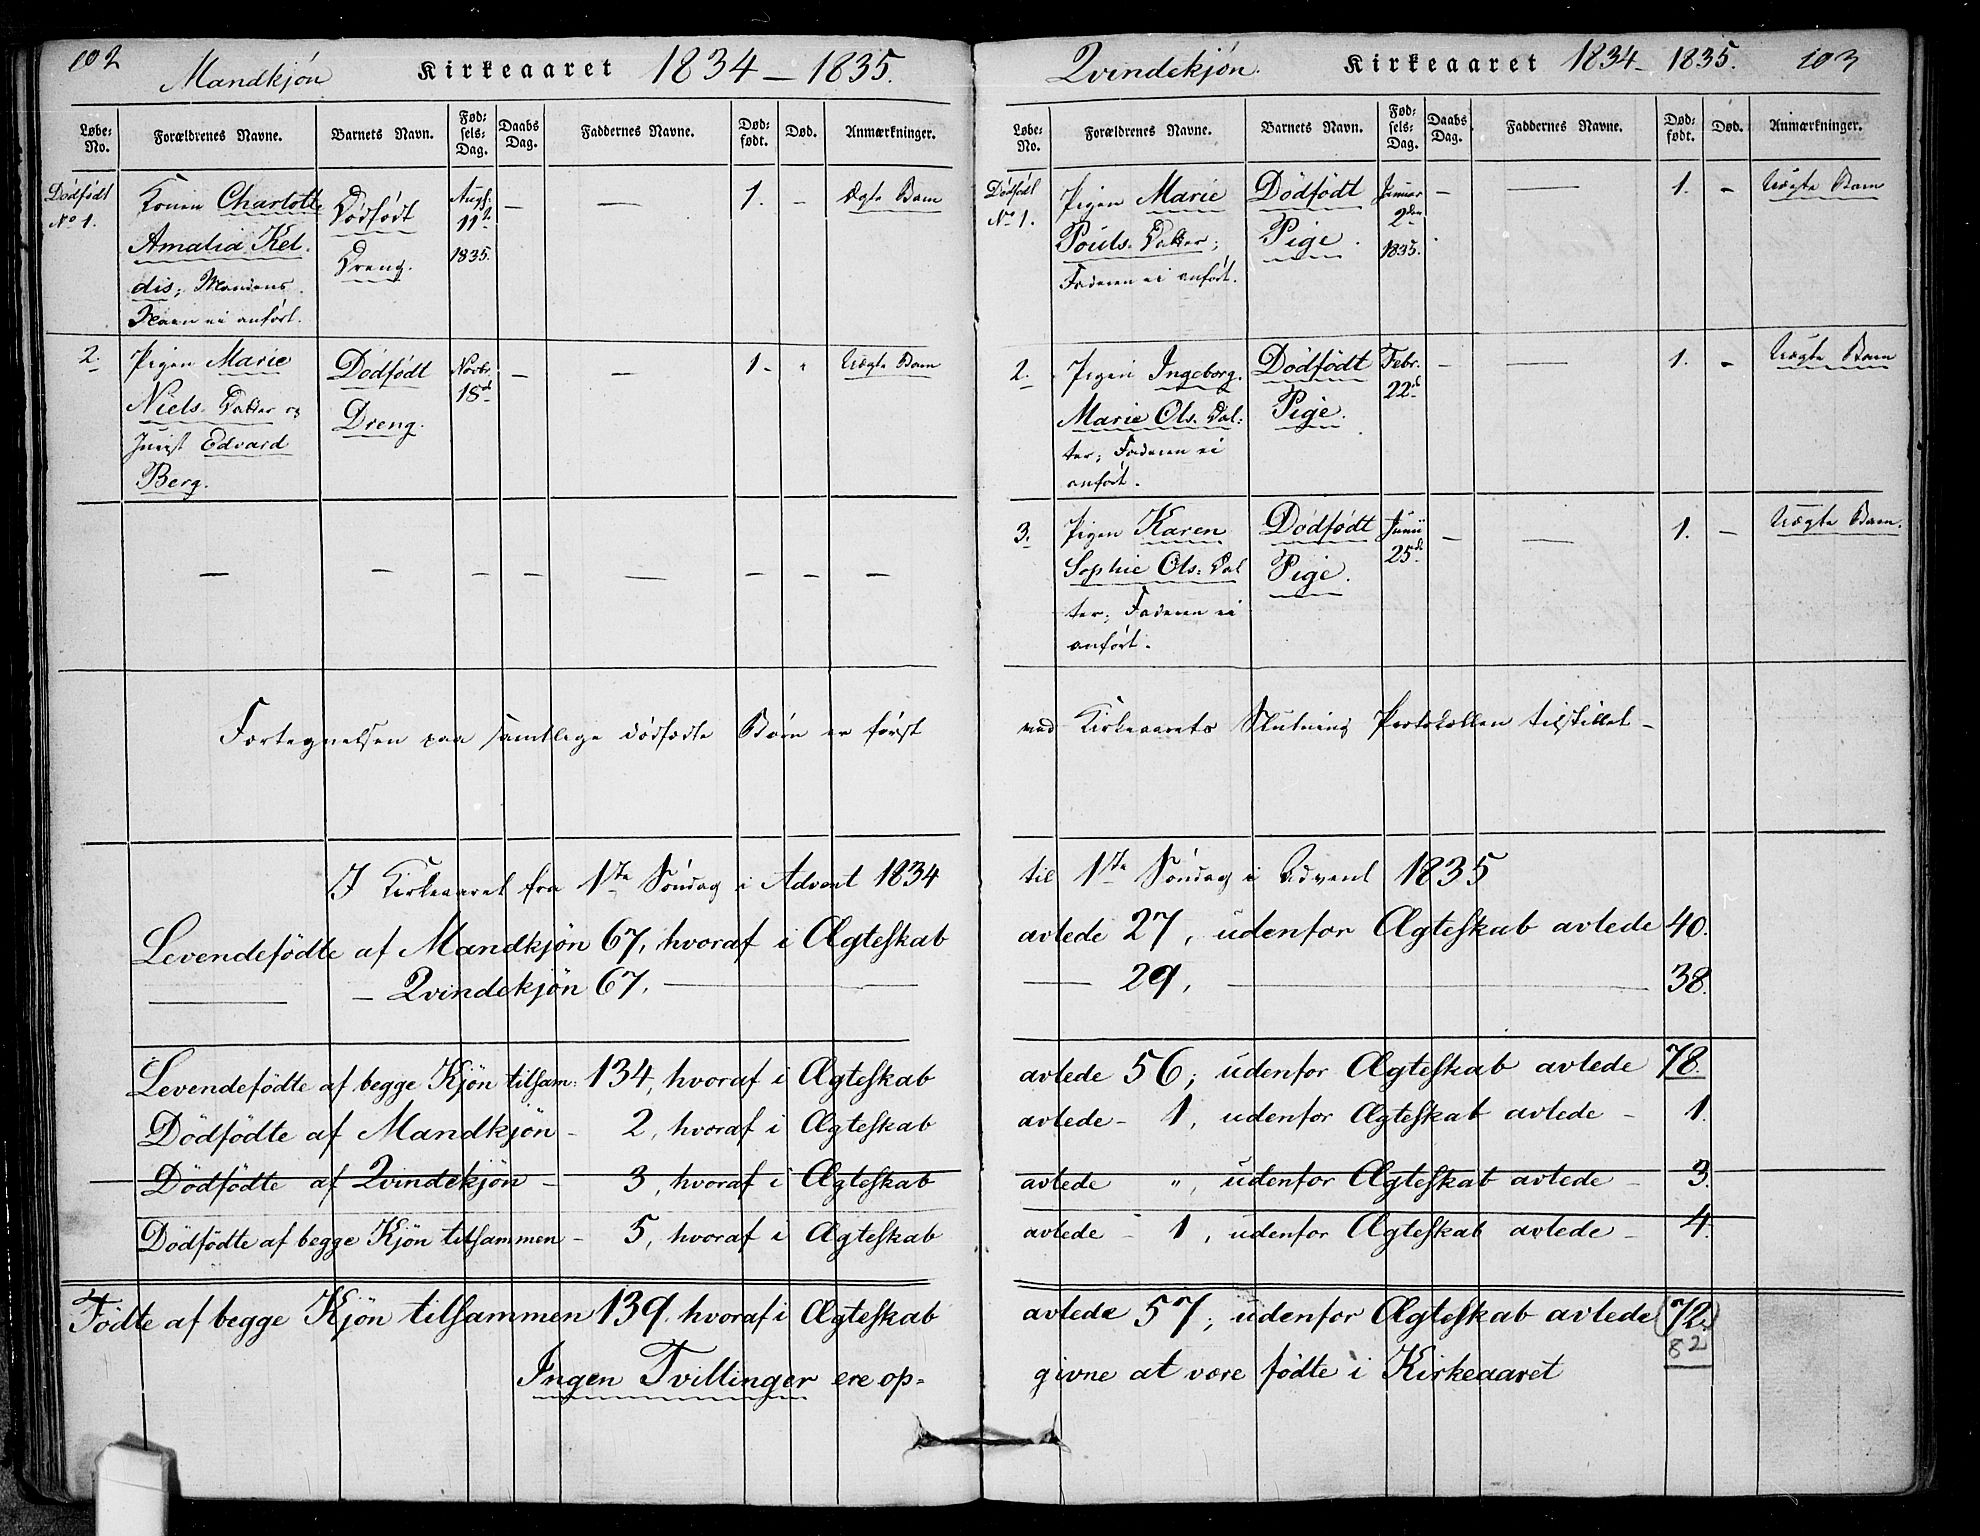 102
Mandkjön Kirkeaaret 1834 – 1835.
Løbe-No. Forældrenes Navne. Barnets Navn. Fødsels-Dag. Daabs Dag. Faddernes Navne. Dødfødt. Død. Anmærkninger.
Dödfödt No 1. Konen Charlotte Dödfödt Augs. 11t – — 1. – Ægte Barn
Amalia Kel- Dreng. 1835.
dis; Mandens
Navn ei anfört.
2. Pigen Marie Dödfödt Novbr. – — 1 - " Uægte Barn
Niels. Datter og Dreng. 18d
Jurist Edvard
Berg.
— — – – — – – —
Fortegnelsen paa samtlige dödfödte Börn er först
I Kirkeaaret fra 1ste Söndag i Advent 1834
Levendefödte af Mandkjön 67, hvoraf i Ægteskab
——— – Qvindekjön 67, ———
Levendefödte af begge Kjön tilsam: 134, hvoraf i Ægteskab
Dödfödte af Mandkjön – 2, hvoraf i Ægteskab
Dödfödte af Qvindekjön – 3, hvoraf i Ægteskab
Dödfödte af begge Kjön tilsammen – 5, hvoraf i Ægteskab
Födte af begge Kjön tilsammen 139. hvoraf i Ægteskab
Ingen Tvillinger ere op-
Qvindekjön. Kirkeaaret 1834 – 1835. 103
Løbe-No. Forældrenes Navne. Barnets Navn. Fødsels-Dag. Daabs Dag. Faddernes Navne. Dødfødt. Død. Anmærkninger.
Dödfödt No 1. Pigen Marie Dödfödt Januar – — 1. – Uægte Barn
Pouls. Datter; Pige. 2den
Faderen ei anfört. 1835.
2. Pigen Ingeborg. Dödfödt Febr. – — 1. – Uægte Barn
Marie Ols. Dat- Pige. 22d
ter; Faderen ei
anfört.
3. Pigen Karen Dödfödt Junii – — 1. – Uægte Barn.
Sophie Ols: Dat Pige. 25d
ter; Faderen ei
anfört.
ved Kirkeaarets Slutning Protokollen tilstillet –
til 1ste Söndag i Advent 1835
avlede 27, udenfor Ægteskab avlede 40.
—— 29, ——— 38.
avlede 56; udenfor Ægteskab avlede 78.
avlede – 1, udenfor Ægteskab avlede – 1.
avlede ", udenfor Ægteskab avlede – 3.
avlede – 1, udenfor Ægteskab avlede – 4.
avlede 57; udenfor Ægteskab avlede (72.)
82
givne at være födte i Kirkeaaret